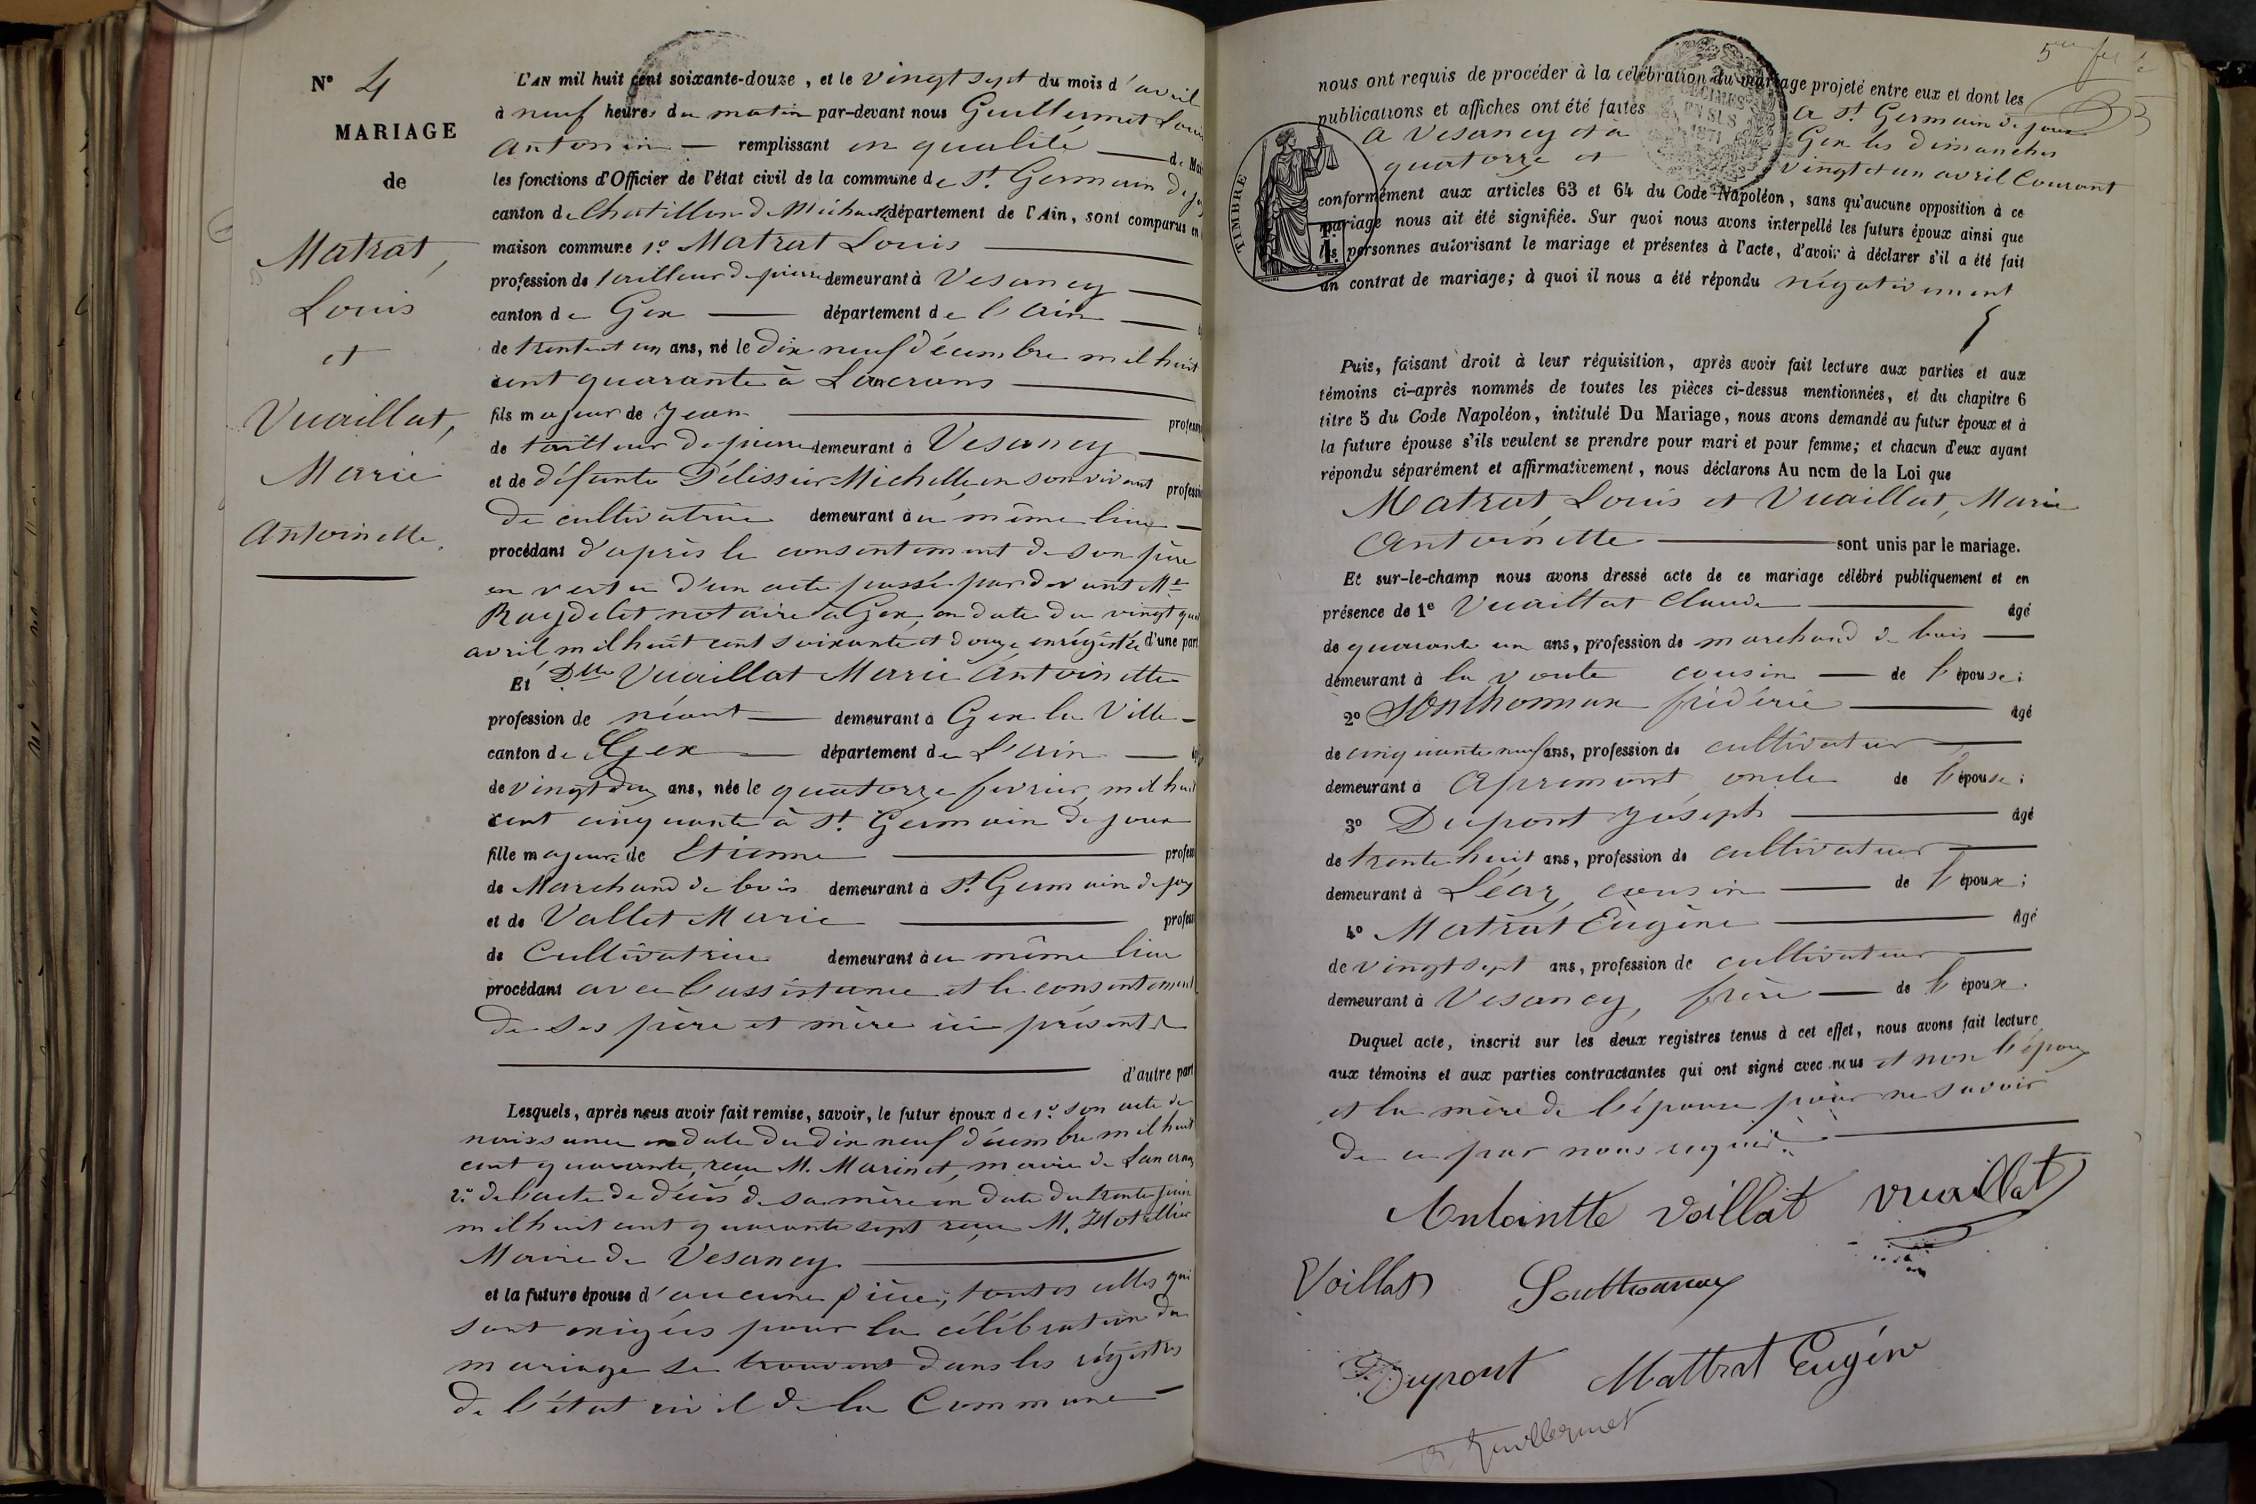 N° 4
MARIAGE
de
Matrat,
Louis
et
Vuaillat,
Marie
Antoinette.
L'AN mil huit cent soixante-douze, et le vingt sept du mois d'avril
à neuf heures du matin par-devant nous Guillermet Louis
Antonin — remplissant en qualité — de Mai
les fonctions d'Officier de l'état civil de la commune de St. Germain de jo
canton de Chatillon de Michaille département de l'Ain, sont comparus en
maison commune 1° Matrat Louis
profession de tailleur de pierre demeurant à Vesancy
canton de Gex — département de l'Ain
de trente et un ans, né le dix neuf décembre mil huit
cent quarante à Lancrans
fils majeur de Jean profession
de tailleur de pierre demeurant à Vesancy
et de défunte Pélissier Michelle, en son vivant profession
de cultivatrice demeurant au même lieu
procédant d'après le consentement de son père
en vertu d'un acte passé pardevant Me
notaire à Gex, en date du vingt
avril mil huit cent soixante et douze enrégistré d'une part
Et Dlle Vuaillat Marie Antoinette
profession de néant — demeurant à Gex la Ville
canton de Gex — département de L'Ain
de vingt deux ans, née le quatorze février mil huit
cent cinquante à St. Germain de joux
fille majeure de Etienne profess
de Marchand de bois demeurant à St. Germain de joux
et de Vallet Marie profess
de Cultivatrice demeurant au même lieu
procédant avec l'assistance et le consentement
de ses père et mère ici présents
d'autre part
Lesquels, après nous avoir fait remise, savoir, le futur époux de 1° son acte de
naissance en date du dix neuf décembre mil huit
cent quarante, reçu M. Marinet, maire de Lancrans
2° de l'acte de décès de sa mère en date du trente juin
mil huit cent quarante sept reçu M.
Maire de Vesancy.
et la future épouse d'aucune pièce, toutes celles qui
sont exigées pour la célébration du
mariage se trouvent dans les régistres
de l'état civil de la Commune
nous ont requis de procéder à la célébration du mariage projeté entre eux et dont les
publications et affiches ont été faites à St. Germain de joux
à Vesancy et à Gex les dimanches
quatorze et vingt et un avril Courant
conformément aux articles 63 et 64 du Code Napoléon, sans qu'aucune opposition à ce
mariage nous ait été signifiée. Sur quoi nous avons interpellé les futurs époux ainsi que
les personnes autorisant le mariage et présentes à l'acte, d'avoir à déclarer s'il a été fait
un contrat de mariage; à quoi il nous a été répondu négativement
TIMBRE
Puis, faisant droit à leur réquisition, après avoir fait lecture aux parties et aux
témoins ci-après nommés de toutes les pièces ci-dessus mentionnées, et du chapitre 6
titre 5 du Code Napoléon, intitulé Du Mariage, nous avons demandé au futur époux et à
la future épouse s'ils veulent se prendre pour mari et pour femme; et chacun d'eux ayant
répondu séparément et affirmativement, nous déclarons Au nom de la Loi que
Matrat, Louis et Vuaillat, Marie
Antoinette — sont unis par le mariage.
Et sur-le-champ nous avons dressé acte de ce mariage célébré publiquement et en
présence de 1° Vuaillat Claude âgé
de quarante un ans, profession de marchand de bois
demeurant à la voute cousin — de l'épouse;
2° Sonthonnax frédéric âgé
de cinquante neuf ans, profession de cultivateur
demeurant à Apremont, oncle de l'épouse;
3° Dupont Joseph âgé
de trente huit ans, profession de cultivateur
demeurant à Léaz, cousin — de l'époux;
4° Matrat Eugène âgé
de vingt sept ans, profession de cultivateur
demeurant à Vesancy, frère — de l'époux.
Duquel acte, inscrit sur les deux registres tenus à cet effet, nous avons fait lecture
aux témoins et aux parties contractantes qui ont signé avec nous et non l'époux
et la mère de l'épouse pour ne savoir
de ce par nous requis.
Antointte Voillat Vuaillat
Voillat Sonthonnax
Dupont Mattrat Eugéne
Guillermet